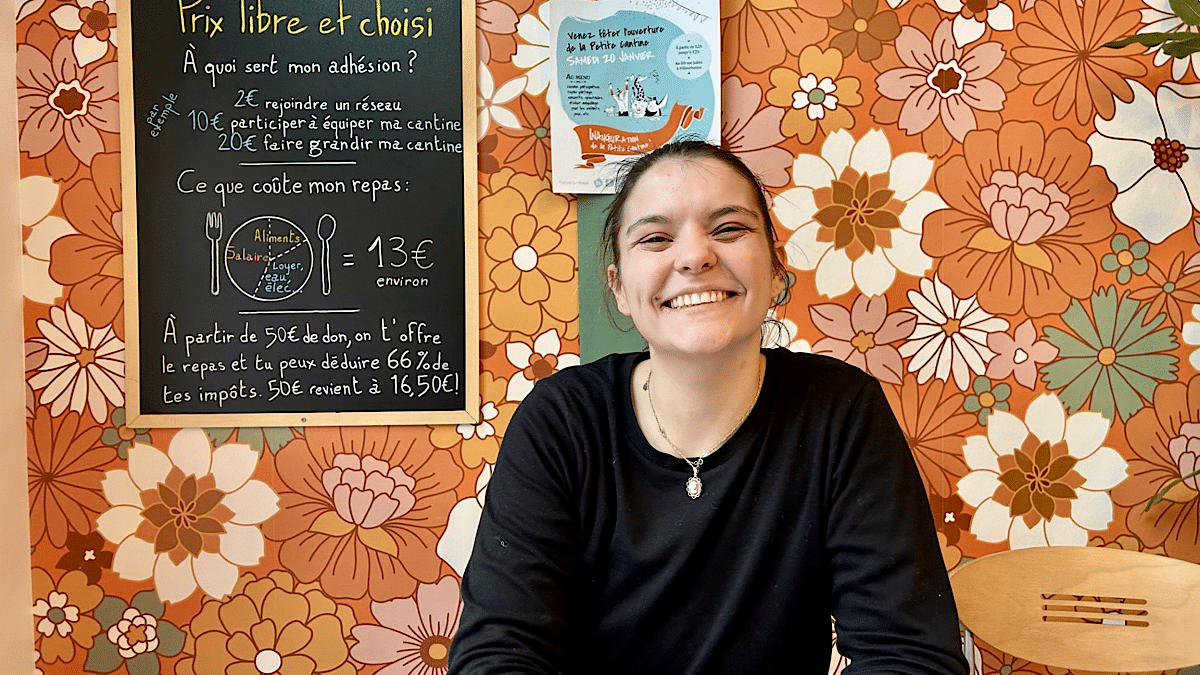 Prix libre et choisi
À quoi sert mon adhésion ?
par exemple
2€ rejoindre un réseau
10€ participer à équiper ma cantine
20€ faire grandir ma cantine
Ce que coûte mon repas :
Aliments
Salaire
Loyer,
eau,
élec.
= 13€
environ
À partir de 50€ de don, on t'offre
le repas et tu peux déduire 66% de
tes impôts. 50€ revient à 16,50€!
Venez fêter l'ouverture
de la Petite Cantine
SAMEDI 20 JANVIER
AU MENU
INAUGURATION
de la Petite Cantine